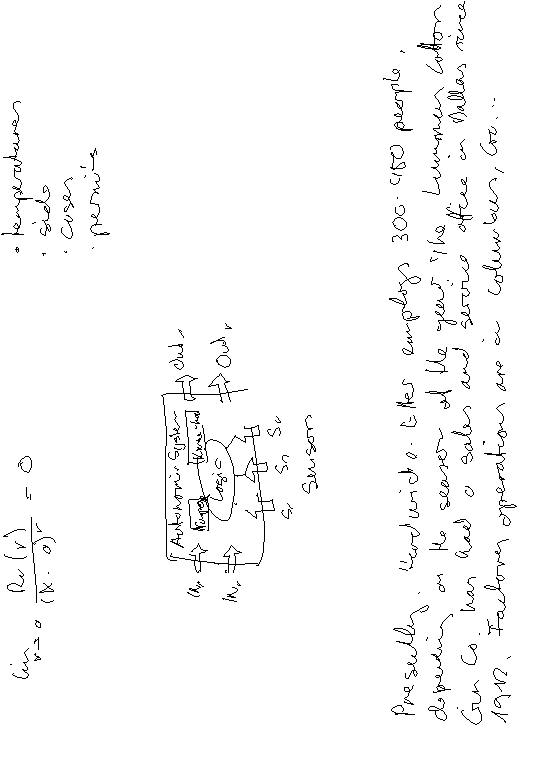 lim r→0 Rr(r) / (x - a)^r = 0
• temperatures
• side
• cases
• permis
Autonomic System
Purpose
Know-how
Logic
In₁
Inᵣ
Out₁
Outᵣ
S₁ Sₙ Sᵣ
Sensors
Presently, Etter employs 300-450 people,
depending on the season of the year. "The Lummus Cotton
Gin Co. has had a sales and service office in Dallas since
1912. operations are in Columbus, Ga...